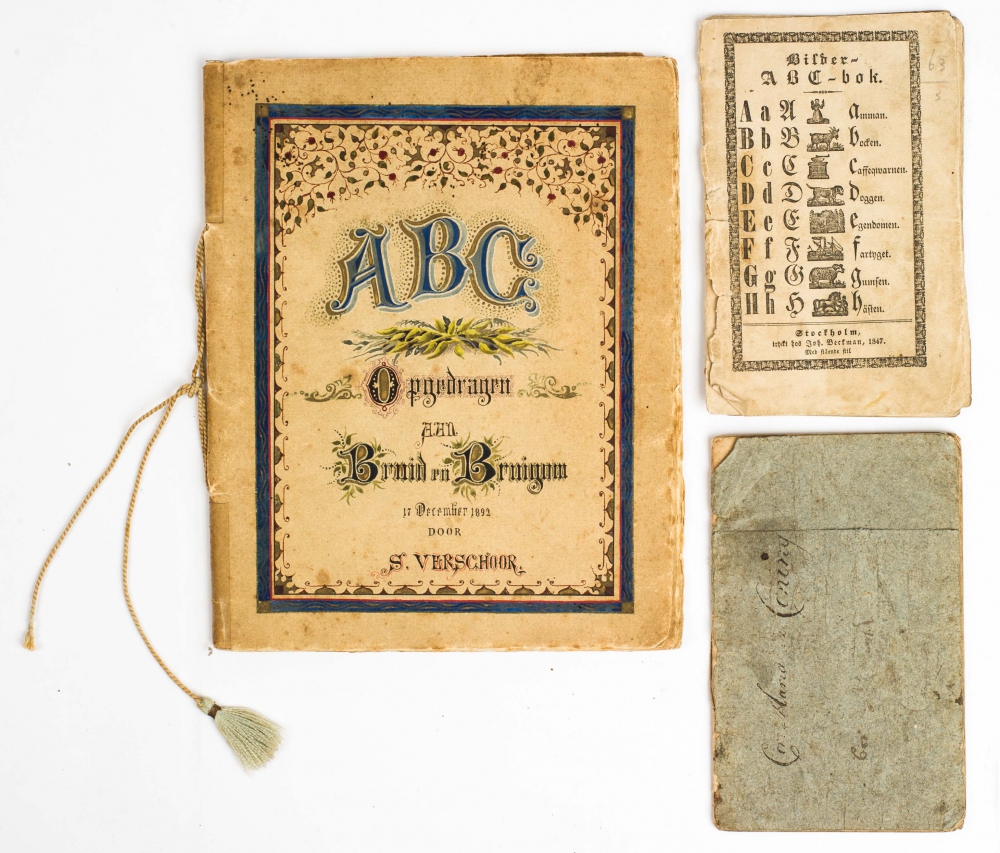 ABC
Opgedragen
AAN
Bruid en Bruigom
17 December 1892
DOOR
S. VERSCHOOR.
Bilder-
ABC-bok.
A a A amman.
B b B bocken.
C c C caffeqwarnen.
D d D doggen.
E e E egendomen.
F f F fartyget.
G g G gumsen.
H h H hästen.
Stockholm,
tryckt hos Joh. Beckman, 1847.
Med stående stil
63
Coning